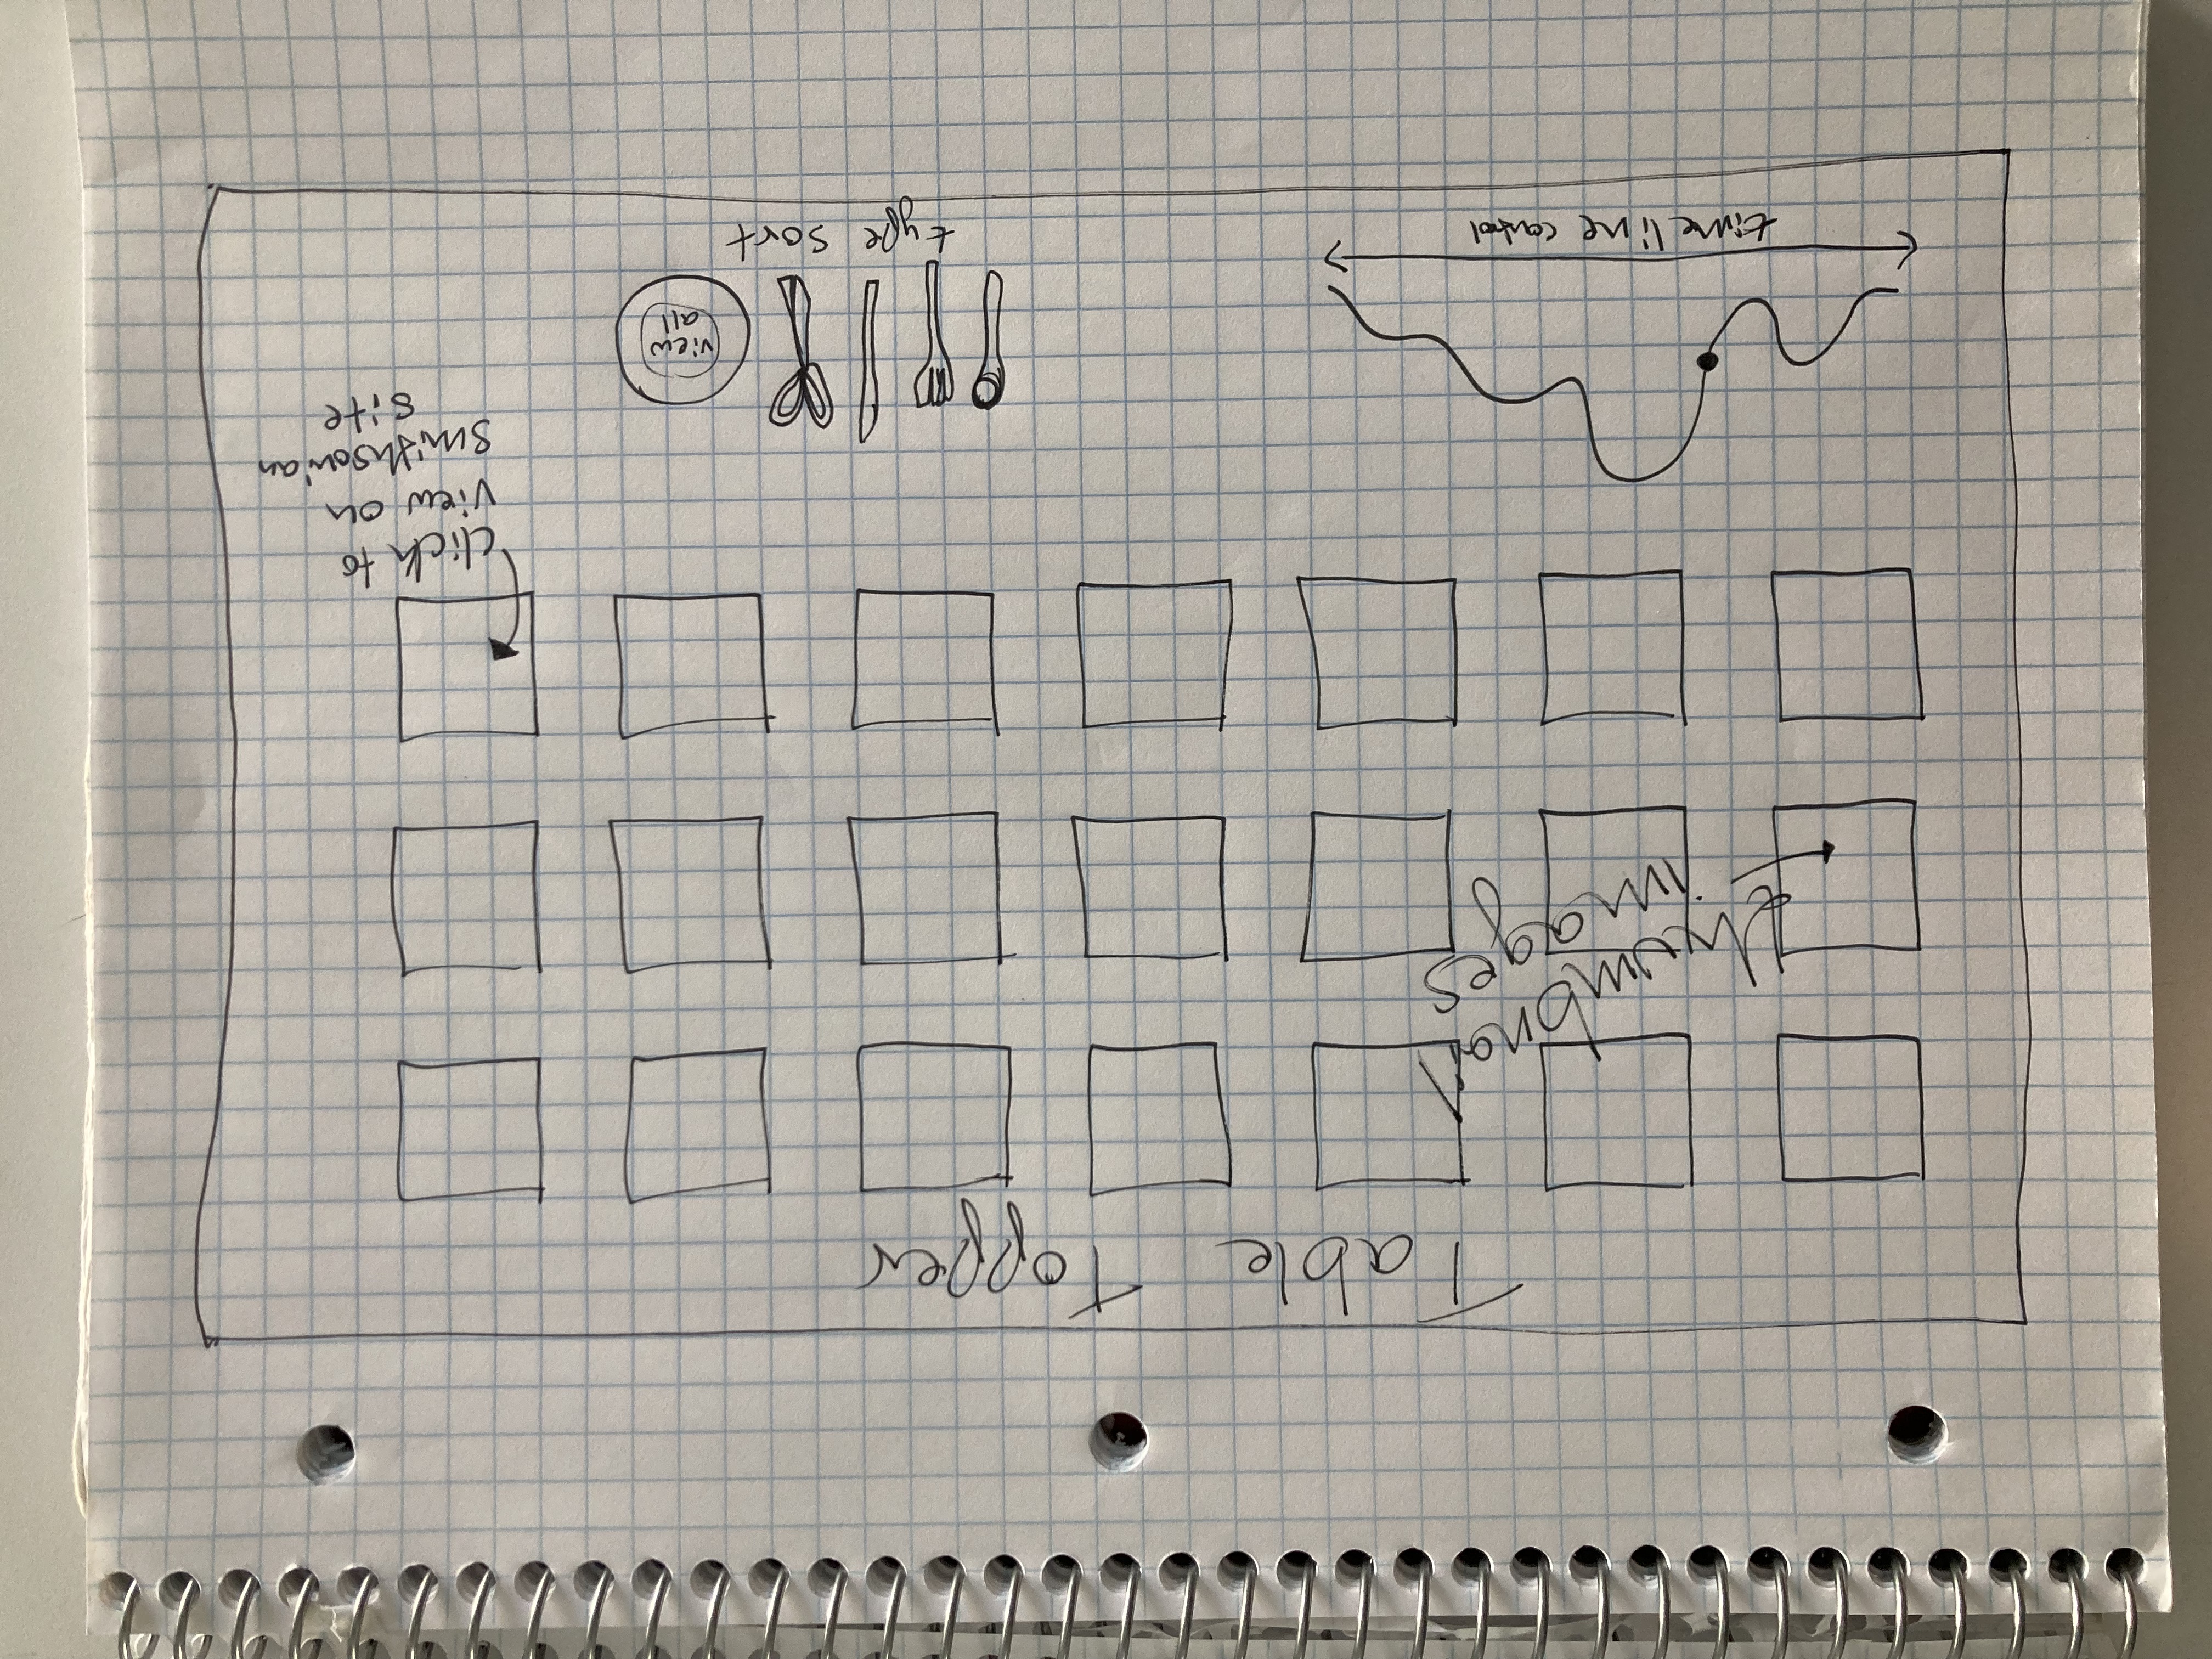 Table Topper
thumbnail
images
click to
view on
smithsonian
site
timeline control
view
all
type sort